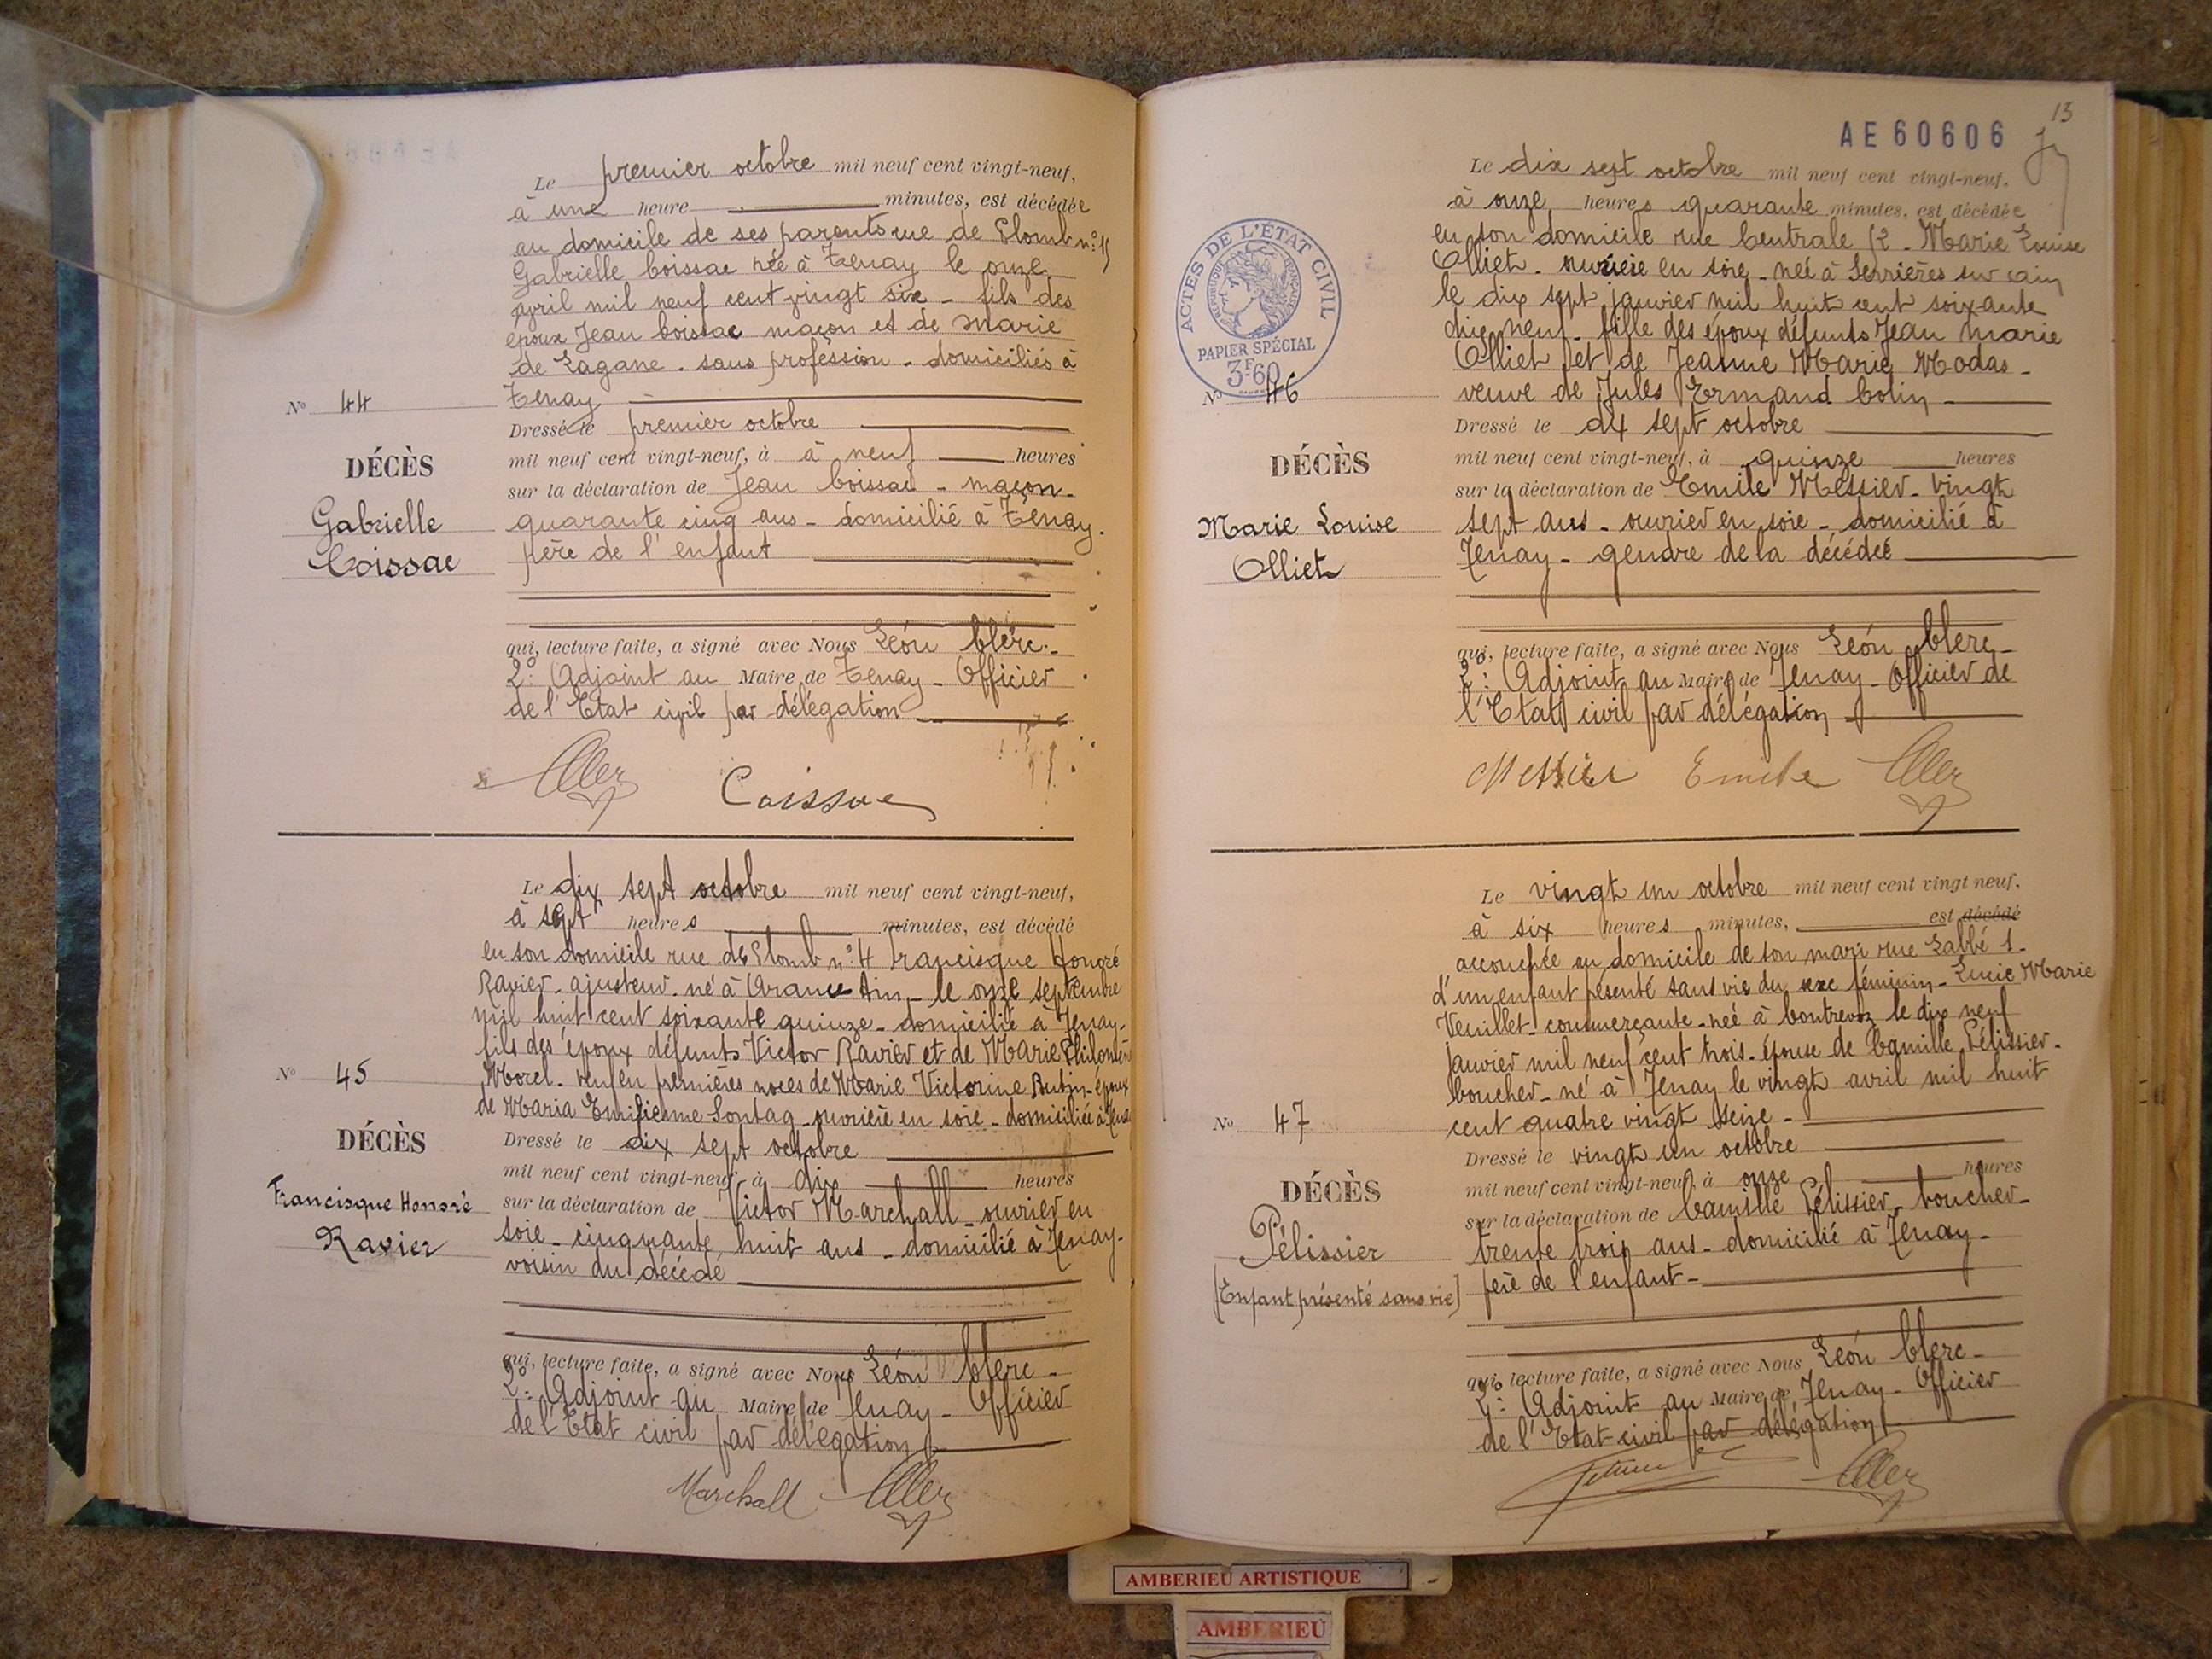 Le premier octobre mil neuf cent vingt-neuf,
à une heure minutes, est décédée
au domicile de ses parents rue de Plomb n°
Gabrielle Coissac née à Tenay le onze
avril mil neuf cent vingt six - fils des
époux Jean Coissac maçon et de Marie
de Lagane - sans profession - domiciliés à
Tenay
Dressé le premier octobre
mil neuf cent vingt-neuf, à à neuf heures
sur la déclaration de Jean Coissac - maçon -
quarante cinq ans - domicilié à Tenay -
père de l'enfant
qui, lecture faite, a signé avec Nous Léon Clerc -
2° Adjoint au Maire de Tenay - Officier
de l'Etat civil par délégation
Coissac
N° 44
DÉCÈS
Gabrielle
Coissac
Le dix sept octobre mil neuf cent vingt-neuf,
à sept heures minutes, est décédé
en son domicile rue de Plomb n° 4 Francisque Honoré
Ravier - ajusteur - né à Aranc Ain - le onze septembre
mil huit cent soixante quinze - domicilié à Tenay -
fils des époux défunts Victor Ravier et de Marie Philomène
Morel - veuf en premières noces de Marie Victorine Butin - époux
de Maria Emilienne Sontag - ouvrière en soie - domiciliée à Tenay
Dressé le dix sept octobre
mil neuf cent vingt-neuf, à dix heures
sur la déclaration de Victor Marchall - ouvrier en
soie - cinquante huit ans - domicilié à Tenay -
voisin du décédé
qui, lecture faite, a signé avec Nous Léon Clerc -
2° Adjoint au Maire de Tenay - Officier
de l'Etat civil par délégation
Marchall
N° 45
DÉCÈS
Francisque Honoré
Ravier
13
AE 60606
ACTES DE L'ÉTAT CIVIL
RÉPUBLIQUE FRANÇAISE
PAPIER SPÉCIAL
3F60
Le dix sept octobre mil neuf cent vingt-neuf,
à onze heures quarante minutes, est décédée
en son domicile rue Centrale 12 - Marie Louise
Olliet - ouvrière en soie - née à Serrières sur Ain
le dix sept janvier mil huit cent soixante
dix neuf - fille des époux défunts Jean Marie
Olliet et de Jeanne Marie Modas -
veuve de Jules Ermand Colin -
Dressé le dix sept octobre
mil neuf cent vingt-neuf, à quinze heures
sur la déclaration de Emile Messier - vingt
sept ans - ouvrier en soie - domicilié à
Tenay - gendre de la décédée
qui, lecture faite, a signé avec Nous Léon Clerc -
2° Adjoint au Maire de Tenay - Officier de
l'Etat civil par délégation
Messier Emile
N° 46
DÉCÈS
Marie Louise
Olliet
Le vingt un octobre mil neuf cent vingt neuf,
à six heures minutes, est décédé
accouchée au domicile de son mari rue Labbé 1 -
d'un enfant présenté sans vie du sexe féminin - Lucie Marie
Veuillet - commerçante - née à Contrevoz le dix neuf
janvier mil neuf cent trois - épouse de Camille Pélissier -
boucher - né à Tenay le vingt avril mil huit
cent quatre vingt seize -
Dressé le vingt un octobre
mil neuf cent vingt-neuf, à onze heures
sur la déclaration de Camille Pélissier - boucher -
trente trois ans - domicilié à Tenay -
père de l'enfant -
qui, lecture faite, a signé avec Nous Léon Clerc -
2° Adjoint au Maire de Tenay - Officier
de l'Etat civil par délégation
N° 47
DÉCÈS
Pélissier
[Enfant présenté sans vie]
AMBERIEU ARTISTIQUE
AMBERIEU